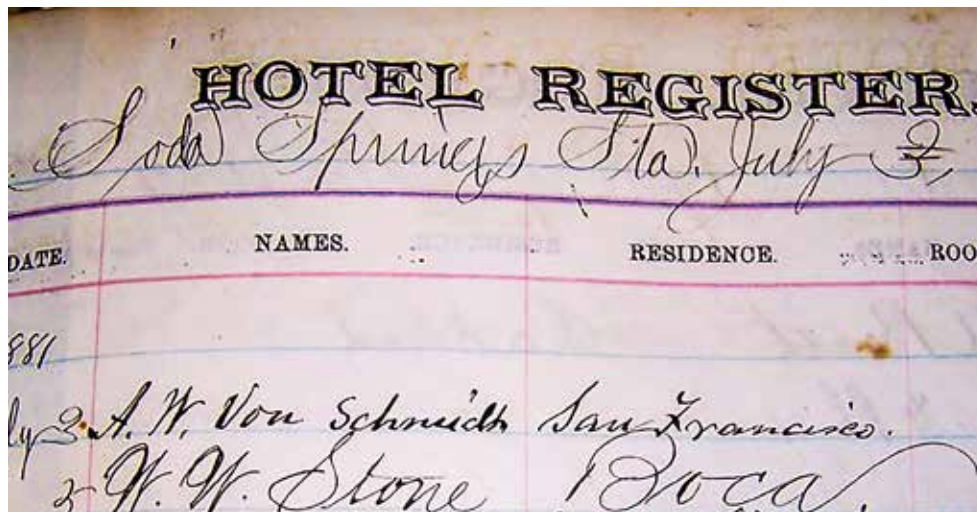 HOTEL REGISTER
Soda Springs Sta. July
DATE. NAMES. RESIDENCE. ROO
881
ly 3 A. W. Von Schmidt San Francisco.
W. W. Stone Boca.